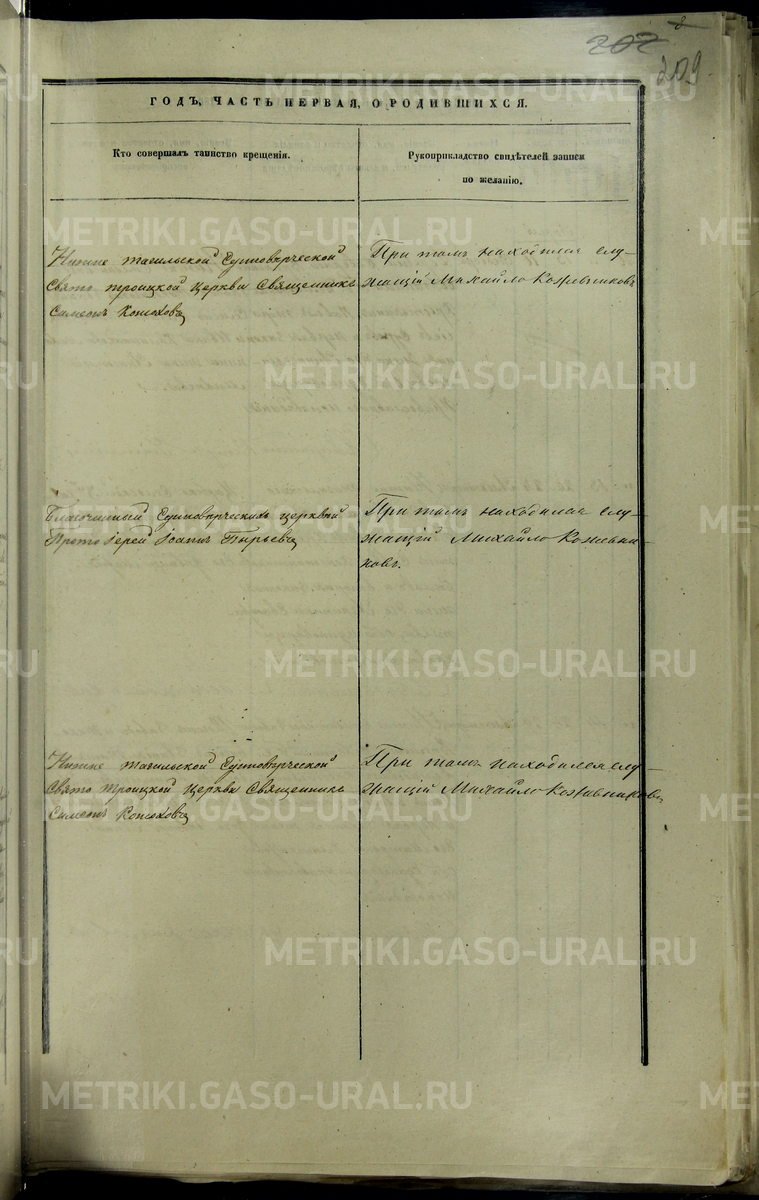 202
209
ГОДЪ, ЧАСТЬ ПЕРВАЯ, О РОДИВШИХСЯ.
Кто совершалъ таинство крещенія.
Рукоприкладство свидѣтелей записи
по желанію.
Нижне тагильской Единовѣрческой
Свято Троицкой Церкви Священникъ
Симеонъ Конюховъ
При томъ находился слу-
жащій Михайло Кожевниковъ
Благочинный Единовѣрческихъ церквей
Прото Іерей Іоаннъ Пырьевъ
При томъ находился слу-
жащій Михайло Кожевни-
ковъ.
Нижне тагильской Единовѣрческой
Свято Троицкой Церкви Священникъ
Симеонъ Конюховъ
При томъ находился слу-
жащій Михайло Кожевниковъ
METRIKI.GASO-URAL.RU